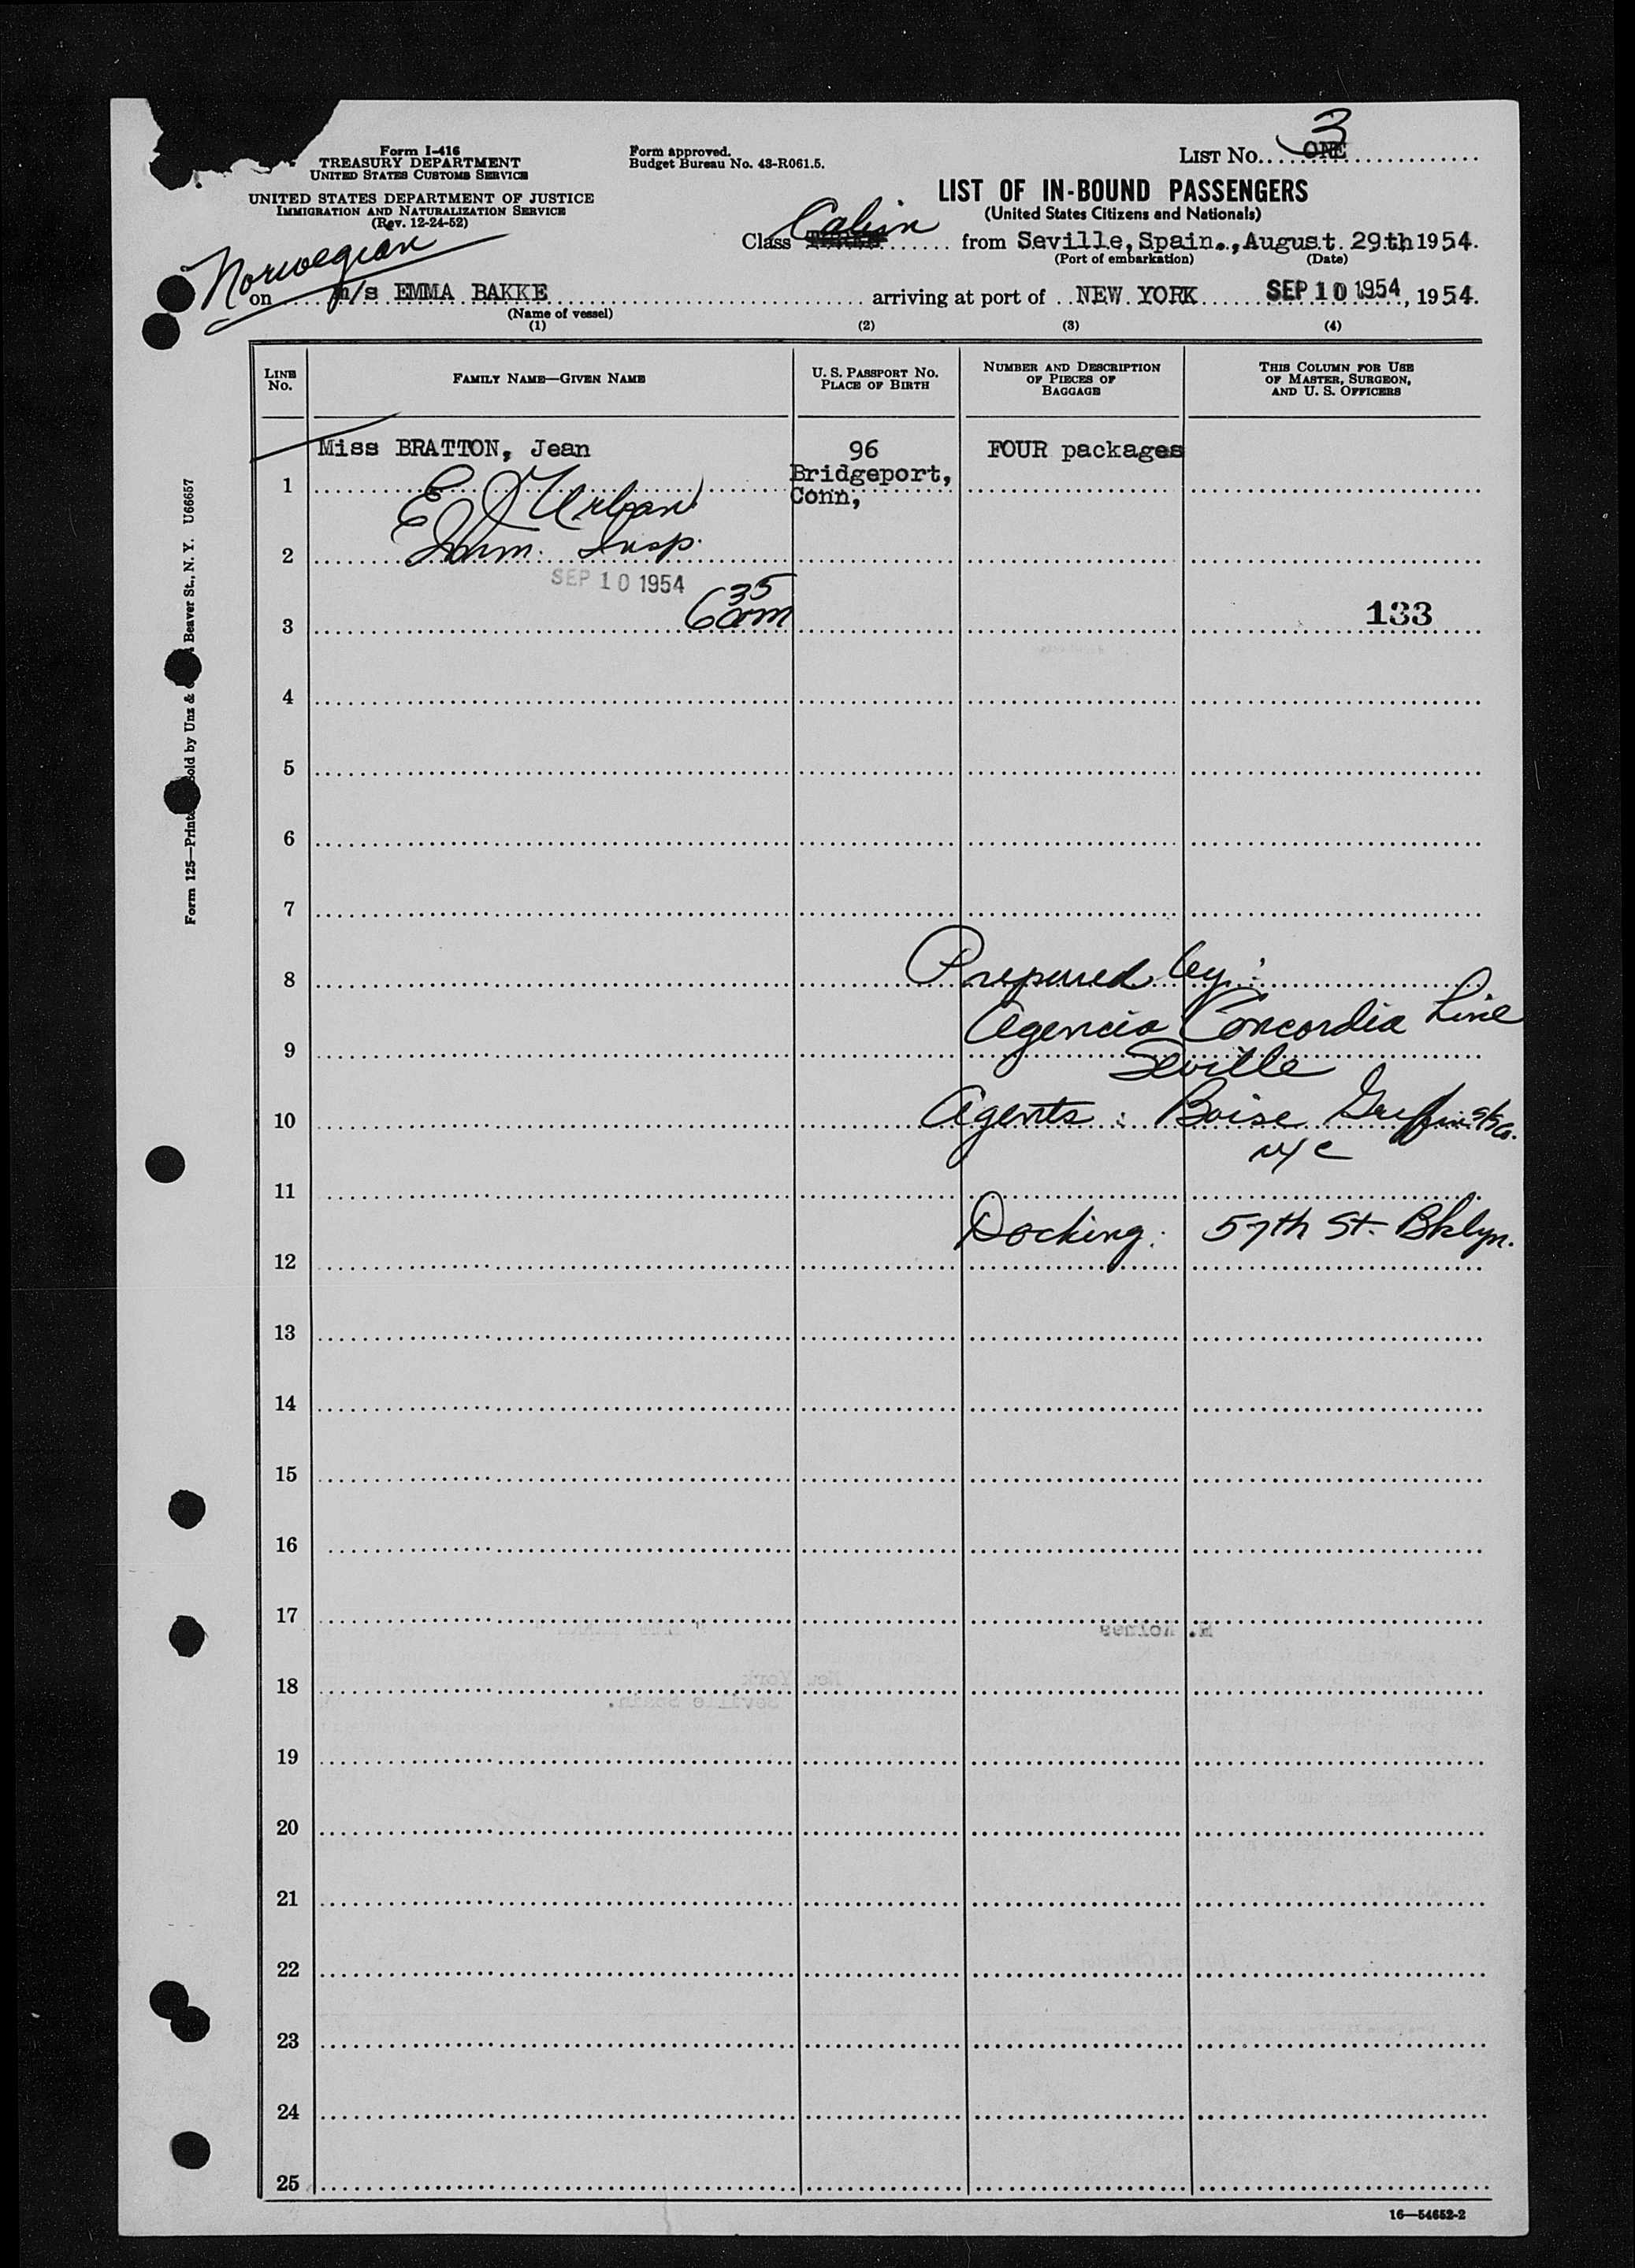 Form I-416
TREASURY DEPARTMENT
UNITED STATES CUSTOMS SERVICE
UNITED STATES DEPARTMENT OF JUSTICE
IMMIGRATION AND NATURALIZATION SERVICE
(Rev. 12-24-52)
Form approved.
Budget Bureau No. 43-R061.5.
LIST No. ONE 3
LIST OF IN-BOUND PASSENGERS
(United States Citizens and Nationals)
Class Cabin from Seville, Spain., August 29th 1954.
(Port of embarkation) (Date)
Norwegian
on m/s EMMA BAKKE arriving at port of NEW YORK SEP 10 1954, 1954.
(Name of vessel)
(1) (2) (3) (4)
LINE No. FAMILY NAME—GIVEN NAME U. S. PASSPORT No. PLACE OF BIRTH NUMBER AND DESCRIPTION OF PIECES OF BAGGAGE THIS COLUMN FOR USE OF MASTER, SURGEON, AND U. S. OFFICERS
Miss BRATTON, Jean 96 FOUR packages
1 Bridgeport, Conn,
E J Urban
2 Imm. Insp.
SEP 10 1954
6 35 am
3 133
4
5
6
7
8 Prepared by:
Agencia Concordia Line
9 Seville
10 Agents: Boise Griffin S/S Co.
NYC
11
Docking: 57th St. Bklyn.
12
13
14
15
16
17
18
19
20
21
22
23
24
25
16—54652-2
Form 125—Printe old by Unz & Beaver St., N. Y. U66657